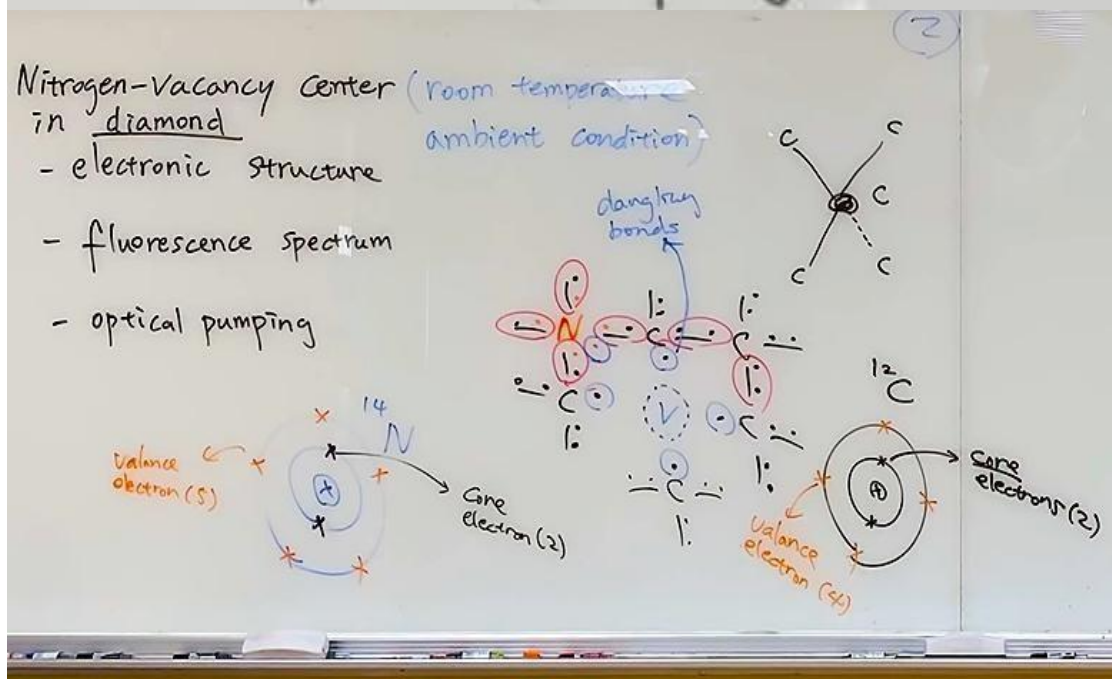 2
Nitrogen-Vacancy Center (room temperature
in diamond ambient condition)
- electronic structure
- fluorescence spectrum
- optical pumping
dangling
bonds
C C
C
C C
N C C
C V C
C
14
N
valance
electron (5)
core
electron (2)
12
C
core
electrons (2)
valance
electron (4)